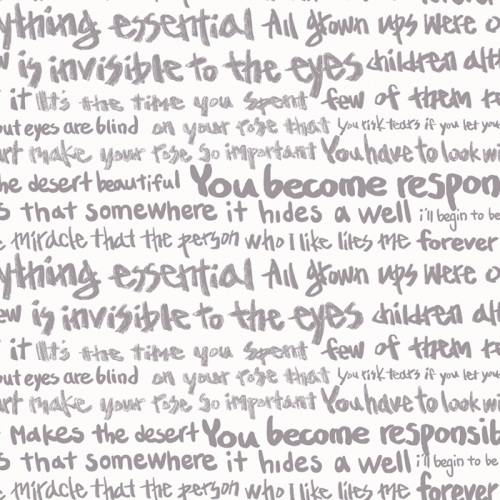 ything essential All grown ups were
is invisible to the eyes children alt
it It's the time you spent few of them
eyes are blind on your rose that You risk tears if you let you
make your rose so important You have to look wi
he desert beautiful You become respon
s that somewhere it hides a well i'll begin to be
miracle that the person who I like likes me forever
ything essential All grown ups were
ew is invisible to the eyes children alt
it It's the time you spent few of them
out eyes are blind on your rose that You risk tears if you let you
make your rose so important You have to look wi
Makes the desert You become responsib
s that somewhere it hides a well i'll begin to be
miracle that the person who I like likes me forever